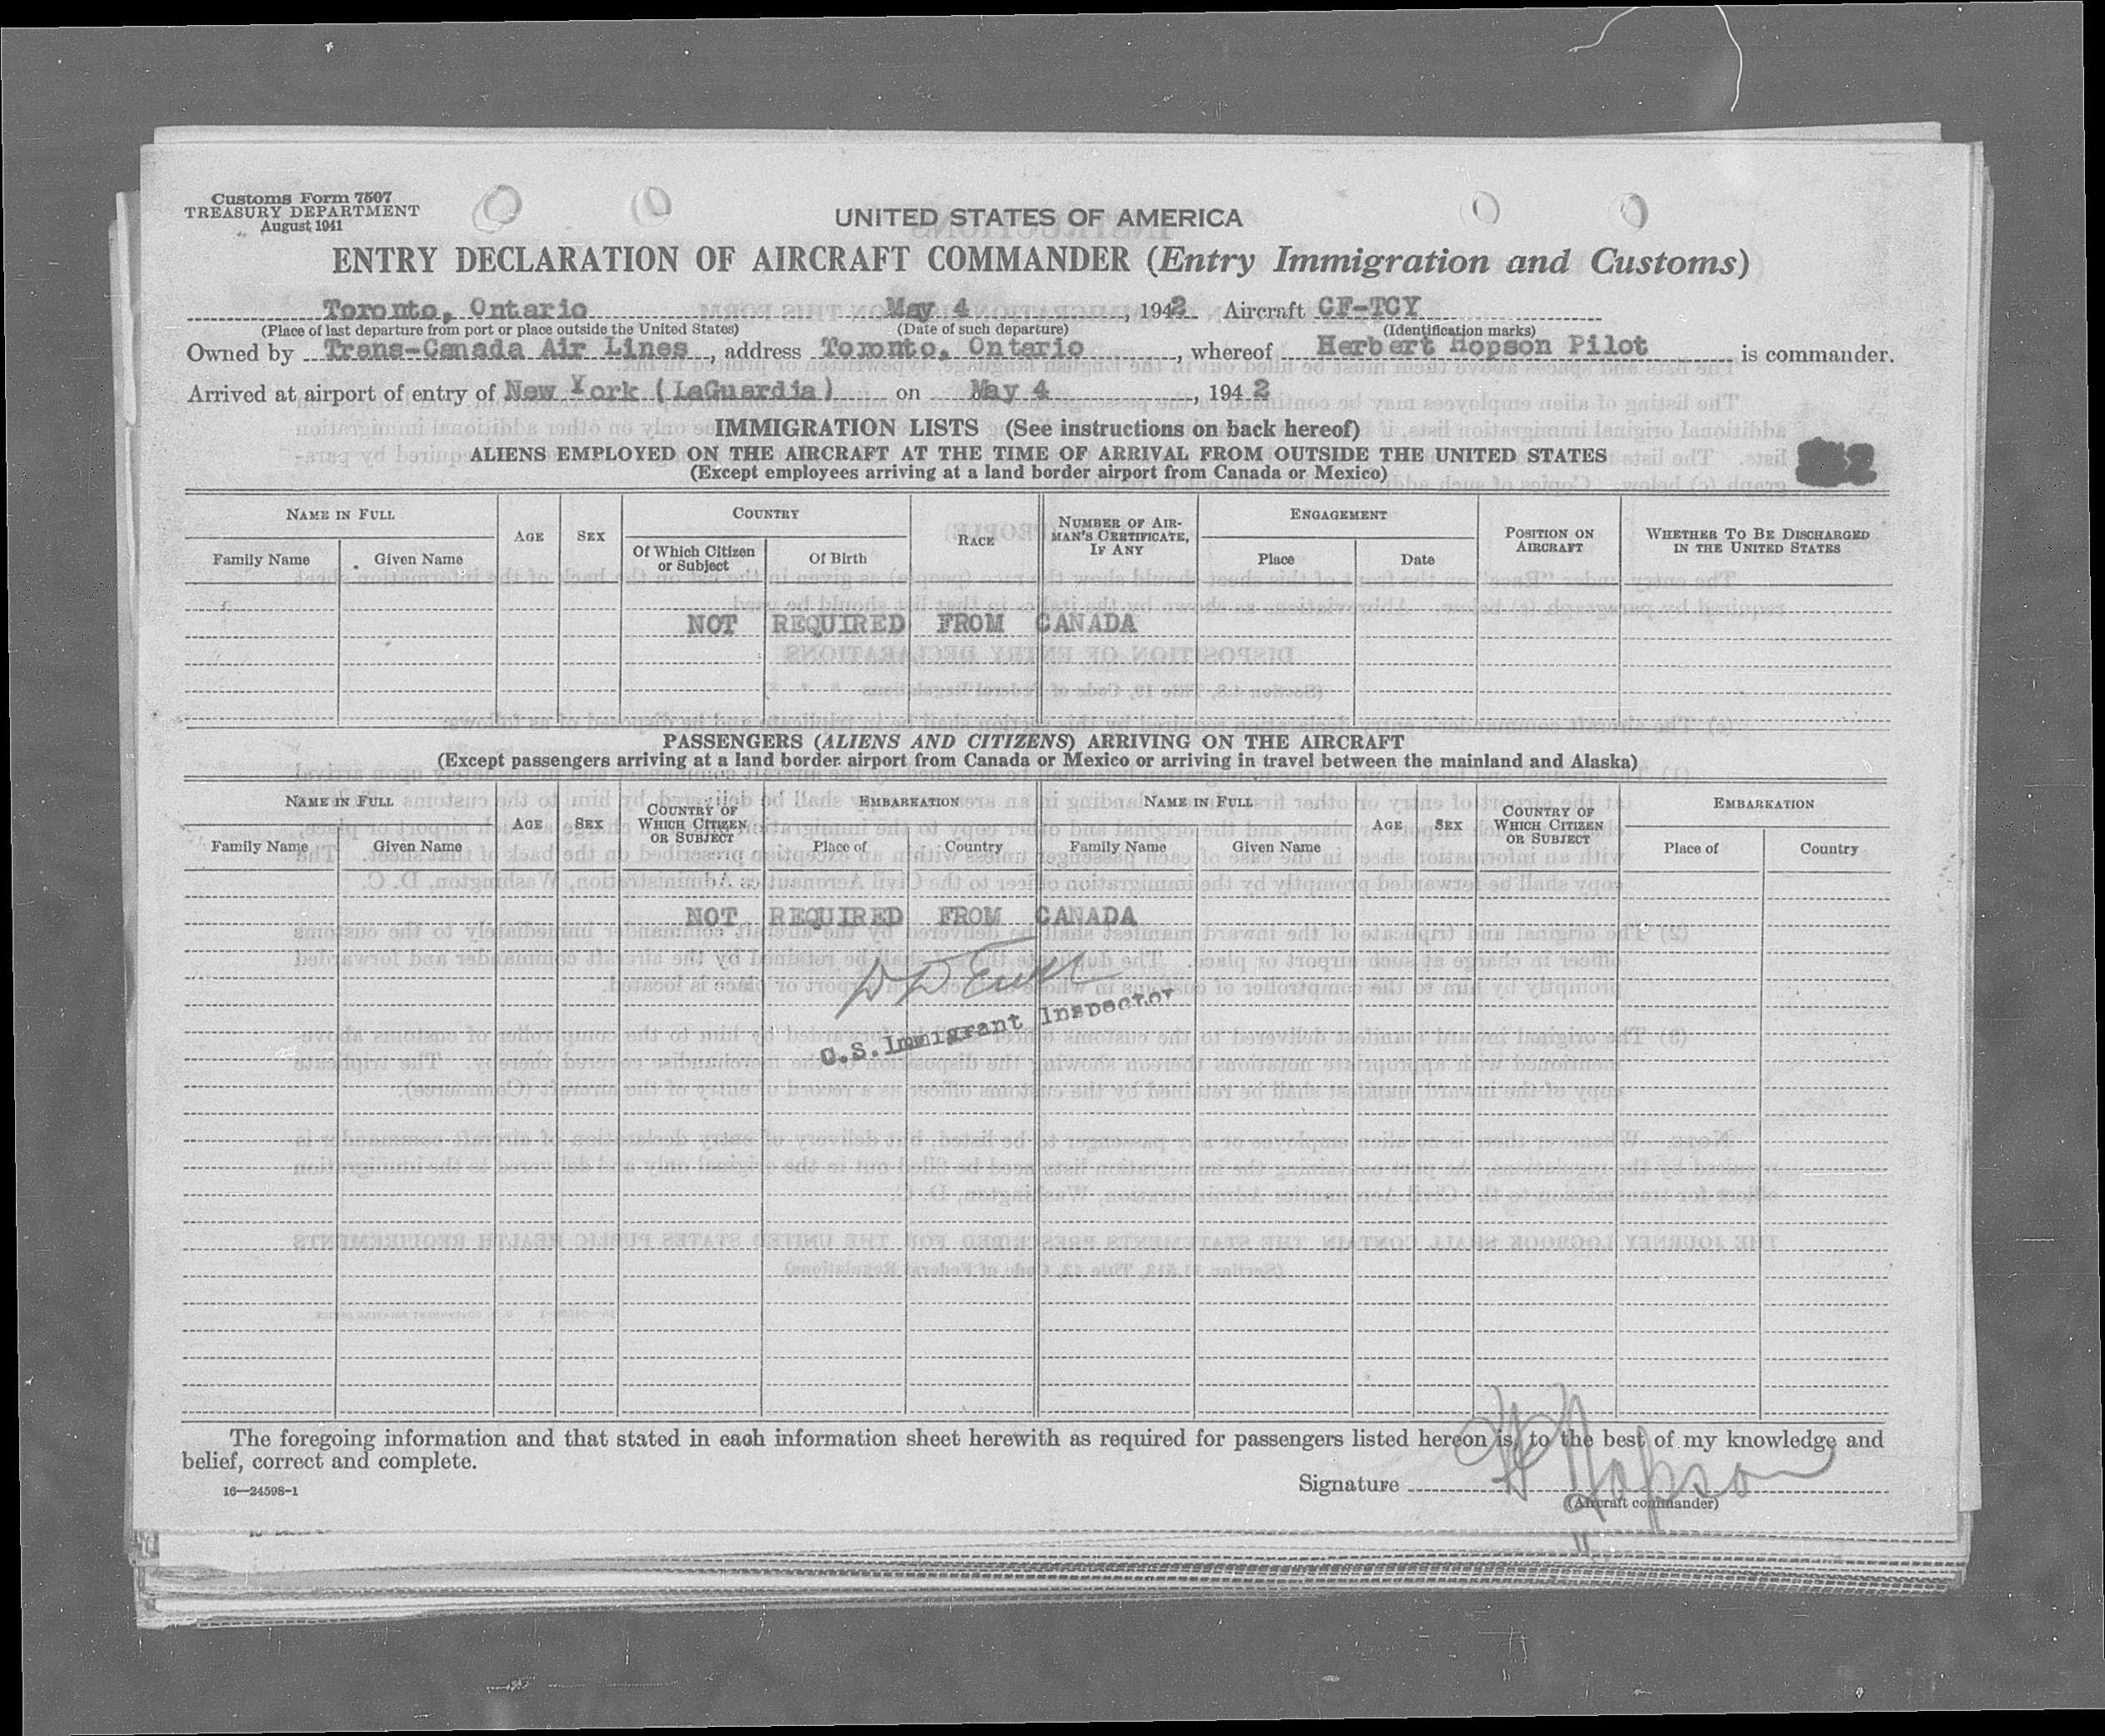 Customs Form 7507
TREASURY DEPARTMENT
August 1941
UNITED STATES OF AMERICA
ENTRY DECLARATION OF AIRCRAFT COMMANDER (Entry Immigration and Customs)
Toronto, Ontario May 4, 1942 Aircraft CF-TCY
(Place of last departure from port or place outside the United States) (Date of such departure) (Identification marks)
Owned by Trans-Canada Air Lines, address Toronto, Ontario, whereof Herbert Hopson Pilot is commander.
Arrived at airport of entry of New York (LaGuardia) on May 4, 1942
IMMIGRATION LISTS (See instructions on back hereof)
ALIENS EMPLOYED ON THE AIRCRAFT AT THE TIME OF ARRIVAL FROM OUTSIDE THE UNITED STATES
(Except employees arriving at a land border airport from Canada or Mexico)
NAME IN FULL AGE SEX COUNTRY RACE NUMBER OF AIR-MAN'S CERTIFICATE, IF ANY ENGAGEMENT POSITION ON AIRCRAFT WHETHER TO BE DISCHARGED IN THE UNITED STATES
Family Name Given Name Of Which Citizen or Subject Of Birth Place Date
NOT REQUIRED FROM CANADA
PASSENGERS (ALIENS AND CITIZENS) ARRIVING ON THE AIRCRAFT
(Except passengers arriving at a land border airport from Canada or Mexico or arriving in travel between the mainland and Alaska)
NAME IN FULL AGE SEX COUNTRY OF WHICH CITIZEN OR SUBJECT EMBARKATION NAME IN FULL AGE SEX COUNTRY OF WHICH CITIZEN OR SUBJECT EMBARKATION
Family Name Given Name Place of Country Family Name Given Name Place of Country
NOT REQUIRED FROM CANADA
U.S. Immigrant Inspector
The foregoing information and that stated in each information sheet herewith as required for passengers listed hereon is, to the best of my knowledge and
belief, correct and complete.
Signature H Hopson
(Aircraft commander)
16—24598-1